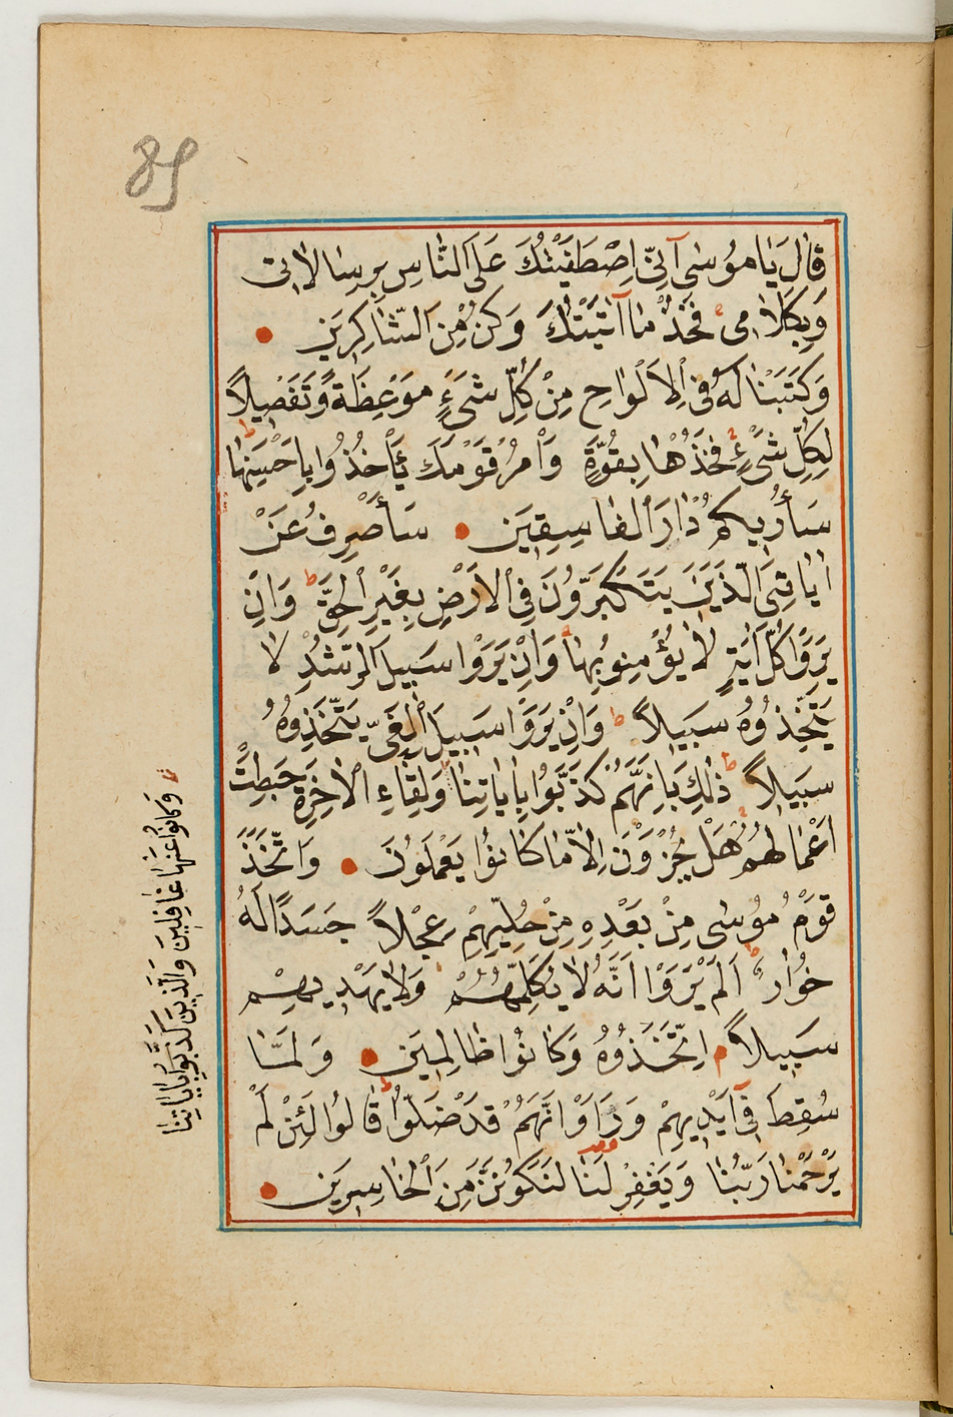 85
قَالَ يَا مُوسٰى اِنِّى اِصْطَفَيْتُكَ عَلَى النَّاسِ بِرِسَالَاتِى
وَبِكَلَامِى فَخُذْ مَا آتَيْتُكَ وَكُنْ مِنَ الشَّاكِرِينَ
وَكَتَبْنَا لَهُ فِى الْاَلْوَاحِ مِنْ كُلِّ شَىْءٍ مَوْعِظَةً وَتَفْصِيلًا
لِكُلِّ شَىْءٍ فَخُذْهَا بِقُوَّةٍ وَأْمُرْ قَوْمَكَ يَأْخُذُوا بِاَحْسَنِهَا
سَأُرِيكُمْ دَارَ الْفَاسِقِينَ سَأَصْرِفُ عَنْ
اٰيَاتِىَ الَّذِينَ يَتَكَبَّرُونَ فِى الْاَرْضِ بِغَيْرِ الْحَقِّ وَاِنْ
يَرَوْا كُلَّ اٰيَةٍ لَا يُؤْمِنُوا بِهَا وَاِنْ يَرَوْا سَبِيلَ الرُّشْدِ لَا
يَتَّخِذُوهُ سَبِيلًا وَاِنْ يَرَوْا سَبِيلَ الْغَىِّ يَتَّخِذُوهُ
سَبِيلًا ذٰلِكَ بِاَنَّهُمْ كَذَّبُوا بِاٰيَاتِنَا وَلِقَاءِ الْاٰخِرَةِ حَبِطَتْ
اَعْمَالُهُمْ هَلْ يُجْزَوْنَ اِلَّا مَا كَانُوا يَعْمَلُونَ وَاتَّخَذَ
قَوْمُ مُوسٰى مِنْ بَعْدِهِ مِنْ حُلِيِّهِمْ عِجْلًا جَسَدًا لَهُ
خُوَارٌ اَلَمْ يَرَوْا اَنَّهُ لَا يُكَلِّمُهُمْ وَلَا يَهْدِيهِمْ
سَبِيلًا اِتَّخَذُوهُ وَكَانُوا ظَالِمِينَ وَلَمَّا
سُقِطَ فِى اَيْدِيهِمْ وَرَاَوْا اَنَّهُمْ قَدْ ضَلُّوا قَالُوا لَئِنْ لَمْ
يَرْحَمْنَا رَبُّنَا وَيَغْفِرْ لَنَا لَنَكُونَنَّ مِنَ الْخَاسِرِينَ
وَكَانُوا عَنْهَا غَافِلِينَ وَالَّذِينَ كَذَّبُوا بِاٰيَاتِنَا